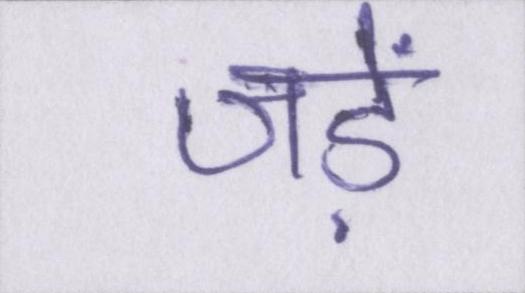 जड़ें